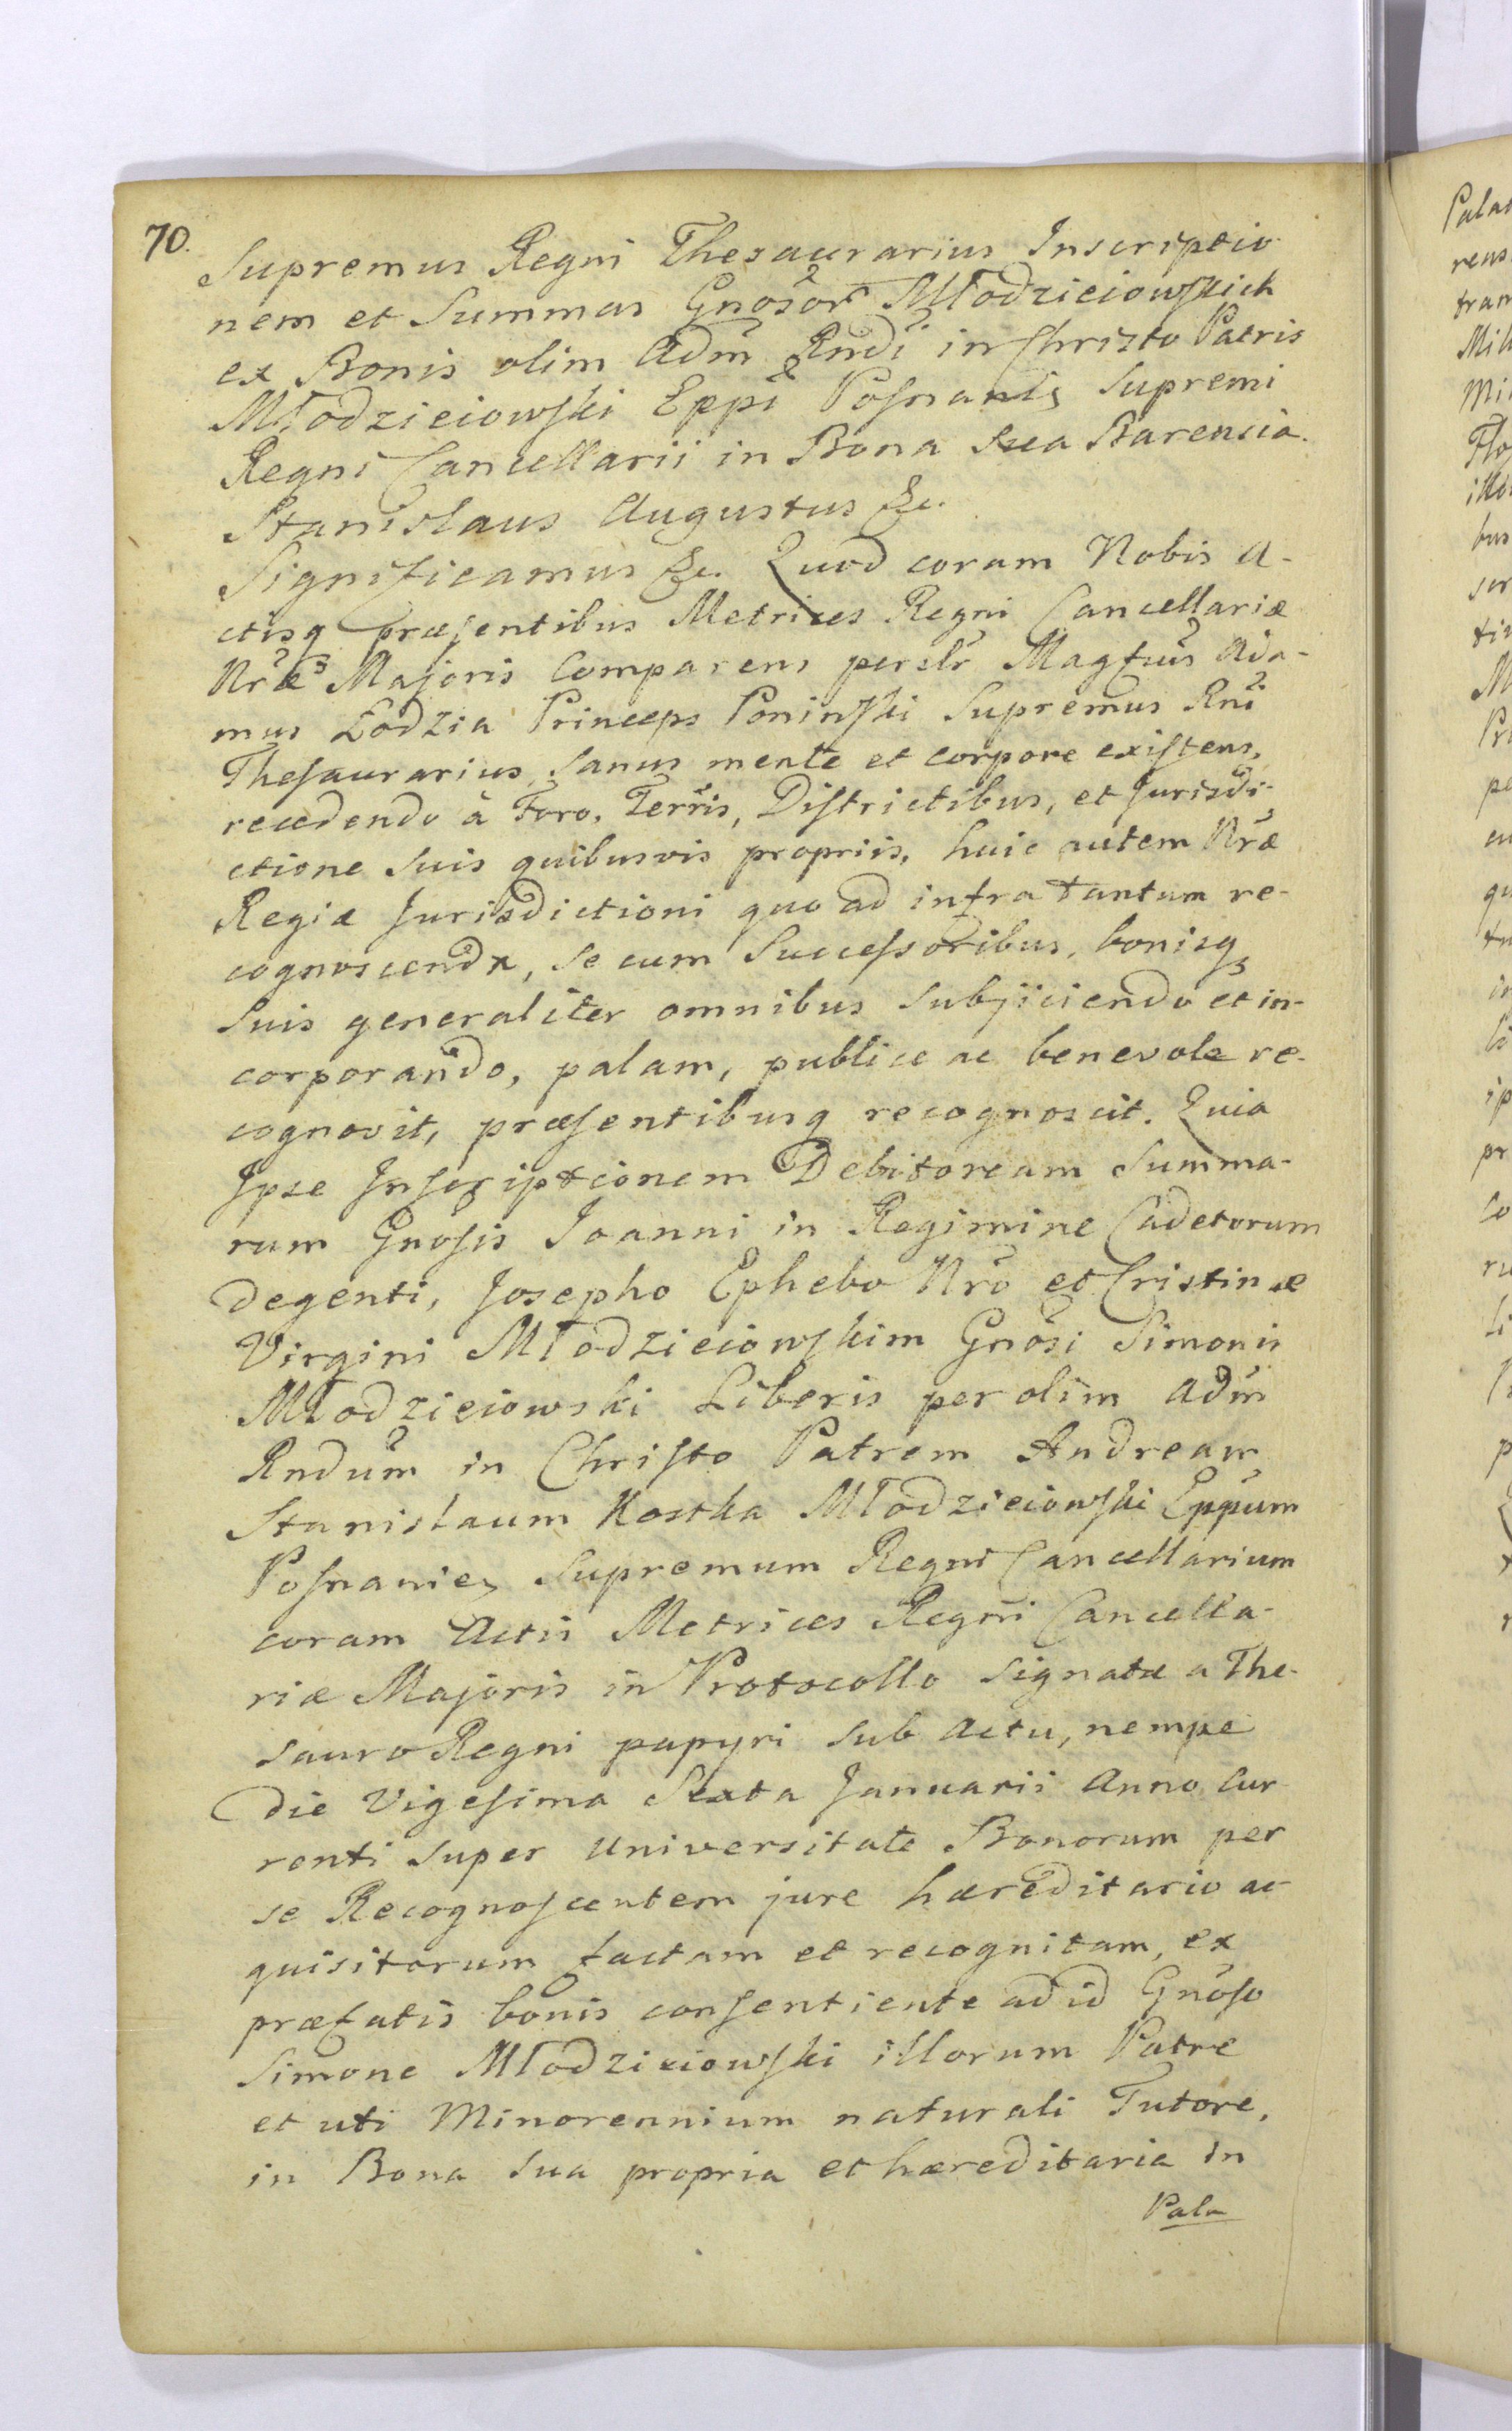 70.
Supremus Regni Thesaurarius Inscriptio-
nem et Summas Gnosor̃ Młodzieiowskich
ex Bonis olim Adm̃ Rndĩ in Christo Patris
Młodzieiowski Eppĩ Posnanis Supremi
Regni Cancellarii in Bona Sua Barensia.
Stanislaus Augustus &c.
Significamus &c. Quod coram Nobis A-
ctisq præsentibus Metrices Regni Cancellariæ
Nræ Majoris Comparens persłr Magfcus Ada-
mus Łodzia Princeps Poninski Supremus Rnĩ
Thesaurarius, sanus mente et corpore existens,
recedendo à Foro, Terris, Districtibus, et Jurisdi-
ctione Suis quibusvis propriis, huic autem Nræ
Regiæ Jurisdictioni quo ad infra tantum re-
cognoscenda, se cum Successoribus, bonisq
suis generaliter omnibus subjiciendo et in-
corporando, palam, publice ac benevole re-
cognovit, præsentibusq recognoscit. Quia
Ipse Inscriptionem Debitoream Summa-
rum Gnosis Joanni in Regimine Cadetorum
degenti, Josepho Ephebo Nrõ et Cristinæ
Virgini Młodzieiowskim Gnosi Simonis
Młodzieiowski Liberis per olim Adm̃
Rndum in Christo Patrem Andream
Stanislaum Kostka Młodzieiowski Eppum
Posnanien Supremum Regni Cancellarium
coram Actis Metrices Regni Cancella-
riæ Majoris in Protocollo signatæ a The-
sauro Regni papyri sub actu, nempe
die Vigesima Sexta Januarii Anno Cur
renti super universitate Bonorum per
se Recognoscentem jure hæreditario ac-
quisitorum factam et recognitam, ex
præfatis bonis consentiente ad id Gnoso
Simone Młodzieiowski illorum Patre
et uti Minorennium naturali Tutore,
in Bona sua propria et hæreditaria in
Pala